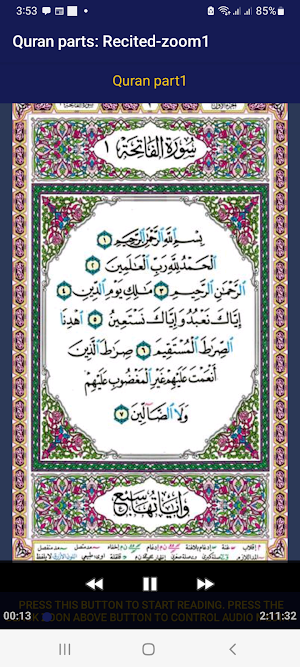 3:53
85%
Quran parts: Recited-zoom1
Quran part1
سورة الفاتحة ١
بِسْمِ ٱللَّهِ ٱلرَّحْمَٰنِ ٱلرَّحِيمِ ١
ٱلْحَمْدُ لِلَّهِ رَبِّ ٱلْعَٰلَمِينَ ٢
ٱلرَّحْمَٰنِ ٱلرَّحِيمِ ٣ مَٰلِكِ يَوْمِ ٱلدِّينِ ٤
إِيَّاكَ نَعْبُدُ وَإِيَّاكَ نَسْتَعِينُ ٥ ٱهْدِنَا
ٱلصِّرَٰطَ ٱلْمُسْتَقِيمَ ٦ صِرَٰطَ ٱلَّذِينَ
أَنْعَمْتَ عَلَيْهِمْ غَيْرِ ٱلْمَغْضُوبِ عَلَيْهِمْ
وَلَا ٱلضَّآلِّينَ ٧
وآياتها سبع
00:13
2:11:32
PRESS THIS BUTTON TO START READING. PRESS THE
ABOVE BUTTON TO CONTROL AUDIO